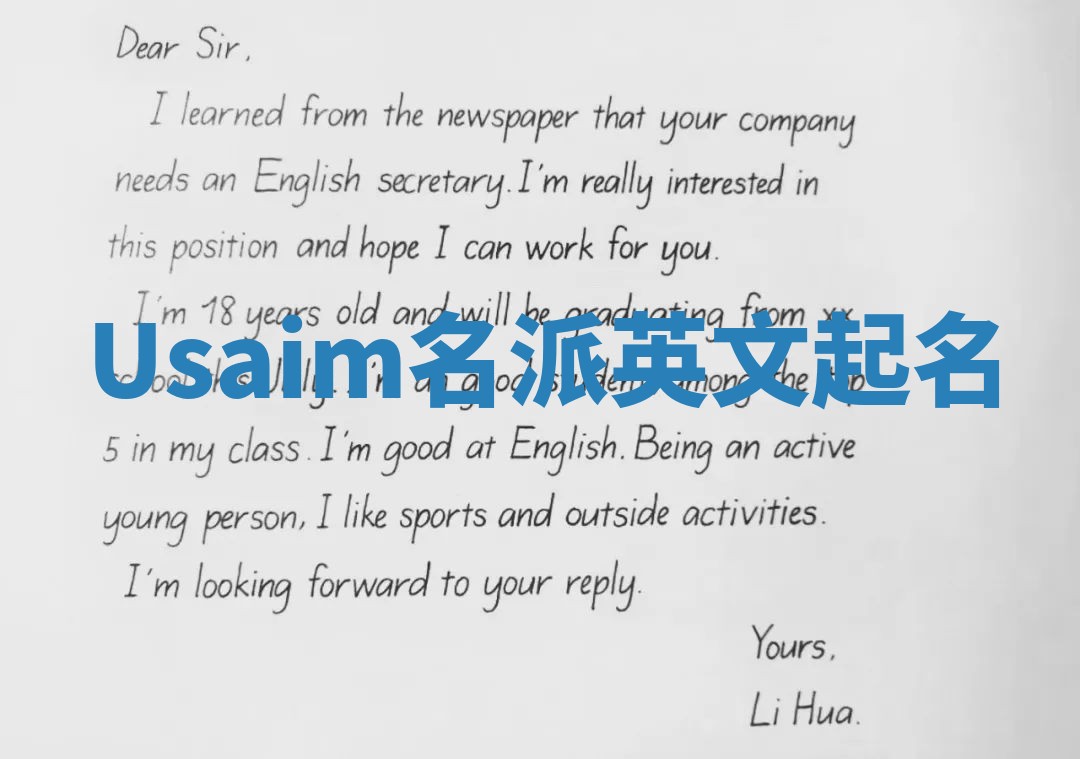 Dear Sir,
I learned from the newspaper that your company
needs an English secretary. I'm really interested in
this position and hope I can work for you.
I'm 18 years old and will be graduating from xx
Usaim名派英文起名
school this July. I'm good student among the top
5 in my class. I'm good at English. Being an active
young person, I like sports and outside activities.
I'm looking forward to your reply.
Yours,
Li Hua.